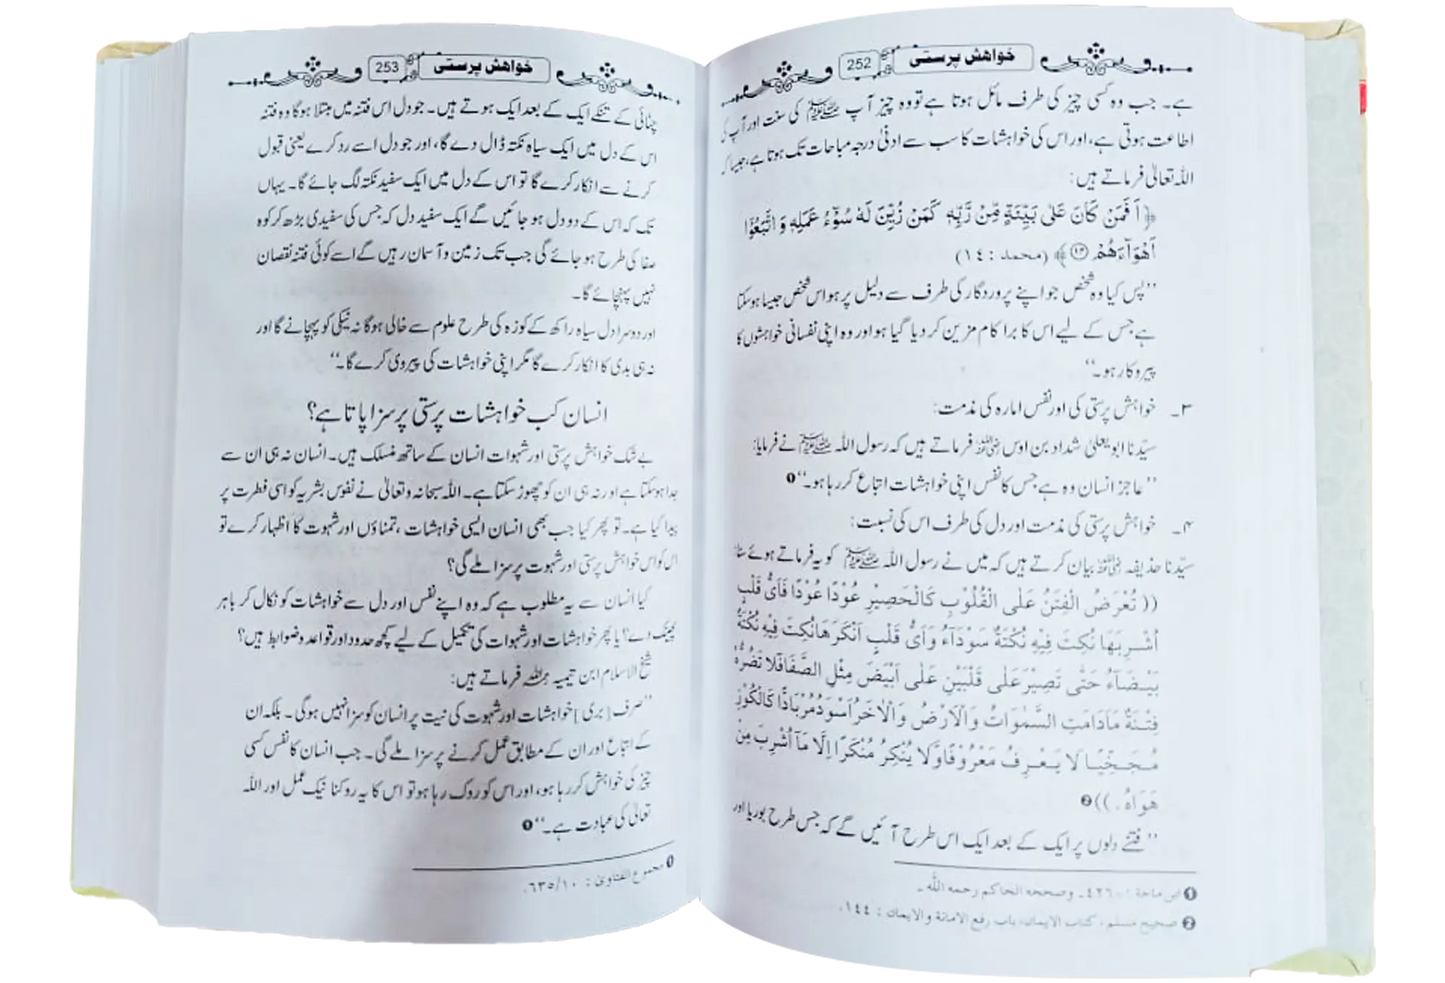 خواہش پرستی 252
ہے۔ جب وہ کسی چیز کی طرف مائل ہوتا ہے تو وہ چیز آپ ﷺ کی سنت اور آپ کی
اطاعت ہوتی ہے، اور اس کی خواہشات کا سب سے ادنیٰ درجہ مباحات تک ہوتا ہے، جیسا کہ
اللہ تعالیٰ فرماتے ہیں:
﴿ اَفَمَنْ كَانَ عَلٰى بَيِّنَةٍ مِّنْ رَّبِّهٖ كَمَنْ زُيِّنَ لَهٗ سُوْٓءُ عَمَلِهٖ وَ اتَّبَعُوْٓا
اَهْوَآءَهُمْ ۝۱۴ ﴾ (محمد : ١٤)
’’پس کیا وہ شخص جو اپنے پروردگار کی طرف سے دلیل پر ہو اس شخص جیسا ہو سکتا
ہے جس کے لیے اس کا برا کام مزین کر دیا گیا ہو اور وہ اپنی نفسانی خواہشوں کا
پیروکار ہو۔‘‘
۳۔ خواہش پرستی کی اور نفس امارہ کی مذمت:
سیّدنا ابو یعلیٰ شداد بن اوس رضی اللہ عنہ فرماتے ہیں کہ رسول اللہ ﷺ نے فرمایا:
’’عاجز انسان وہ ہے جس کا نفس اپنی خواہشات اتباع کر رہا ہو۔‘‘ ❶
۴۔ خواہش پرستی کی مذمت اور دل کی طرف اس کی نسبت:
سیّدنا حذیفہ رضی اللہ عنہ بیان کرتے ہیں کہ میں نے رسول اللہ ﷺ کو یہ فرماتے ہوئے سنا:
(( تُعْرَضُ الْفِتَنُ عَلَى الْقُلُوْبِ كَالْحَصِيْرِ عُوْدًا عُوْدًا فَأَىُّ قَلْبٍ
أُشْرِبَهَا نُكِتَ فِيْهِ نُكْتَةٌ سَوْدَآءُ وَأَىُّ قَلْبٍ اَنْكَرَهَا نُكِتَ فِيْهِ نُكْتَةٌ
بَيْضَآءُ حَتّٰى تَصِيْرَ عَلٰى قَلْبَيْنِ عَلٰى اَبْيَضَ مِثْلِ الصَّفَا فَلَا تَضُرُّهُ
فِتْنَةٌ مَادَامَتِ السَّمٰوَاتُ وَالْاَرْضُ وَالْاٰخَرُ اَسْوَدُ مُرْبَادًّا كَالْكُوْزِ
مُجَخِّيًا لَا يَعْرِفُ مَعْرُوْفًا وَّلَا يُنْكِرُ مُنْكَرًا اِلَّا مَآ اُشْرِبَ مِنْ
هَوَاهُ . )) ❷
’’فتنے دلوں پر ایک کے بعد ایک اس طرح آئیں گے کہ جس طرح بوریا اور
❶ ابن ماجة : ٤٢٦٠۔ وصححه الحاكم رحمه الله ۔
❷ صحيح مسلم، كتاب الايمان، باب رفع الامانة والايمان : ١٤٤ .
خواہش پرستی 253
چٹائی کے تنکے ایک کے بعد ایک ہوتے ہیں۔ جو دل اس فتنہ میں مبتلا ہو گا وہ فتنہ
اس کے دل میں ایک سیاہ نکتہ ڈال دے گا، اور جو دل اسے رد کرے یعنی قبول
کرنے سے انکار کرے گا تو اس کے دل میں ایک سفید نکتہ لگ جائے گا۔ یہاں
تک کہ اس کے دو دل ہو جائیں گے ایک سفید دل کہ جس کی سفیدی بڑھ کر کوہ
صفا کی طرح ہو جائے گی جب تک زمین و آسمان رہیں گے اسے کوئی فتنہ نقصان
نہیں پہنچائے گا۔
اور دوسرا دل سیاہ راکھ کے کوزہ کی طرح علوم سے خالی ہوگا نہ نیکی کو پہچانے گا اور
نہ ہی بدی کا انکار کرے گا مگر اپنی خواہشات کی پیروی کرے گا۔‘‘
انسان کب خواہشات پرستی پر سزا پاتا ہے؟
بے شک خواہش پرستی اور شہوات انسان کے ساتھ منسلک ہیں۔ انسان نہ ہی ان سے
جدا ہو سکتا ہے اور نہ ہی ان کو چھوڑ سکتا ہے۔ اللہ سبحانہ وتعالیٰ نے نفوس بشریہ کو اسی فطرت پر
پیدا کیا ہے۔ تو پھر کیا جب بھی انسان ایسی خواہشات، تمناؤں اور شہوت کا اظہار کرے تو
اس کو اس خواہش پرستی اور شہوت پر سزا ملے گی؟
کیا انسان سے یہ مطلوب ہے کہ وہ اپنے نفس اور دل سے خواہشات کو نکال کر باہر
پھینک دے؟ یا پھر خواہشات اور شہوات کی تکمیل کے لیے کچھ حدود اور قواعد و ضوابط ہیں؟
شیخ الاسلام ابن تیمیہ رحمہ اللہ فرماتے ہیں:
’’صرف [بری] خواہشات اور شہوت کی نیت پر انسان کو سزا نہیں ہوگی۔ بلکہ ان
کے اتباع اور ان کے مطابق عمل کرنے پر سزا ملے گی۔ جب انسان کا نفس کسی
چیز کی خواہش کر رہا ہو، اور اس کو روک رہا ہو تو اس کا یہ روکنا نیک عمل اور اللہ
تعالیٰ کی عبادت ہے۔‘‘ ❶
❶ مجموع الفتاوىٰ : ١٠/٦٣٥.